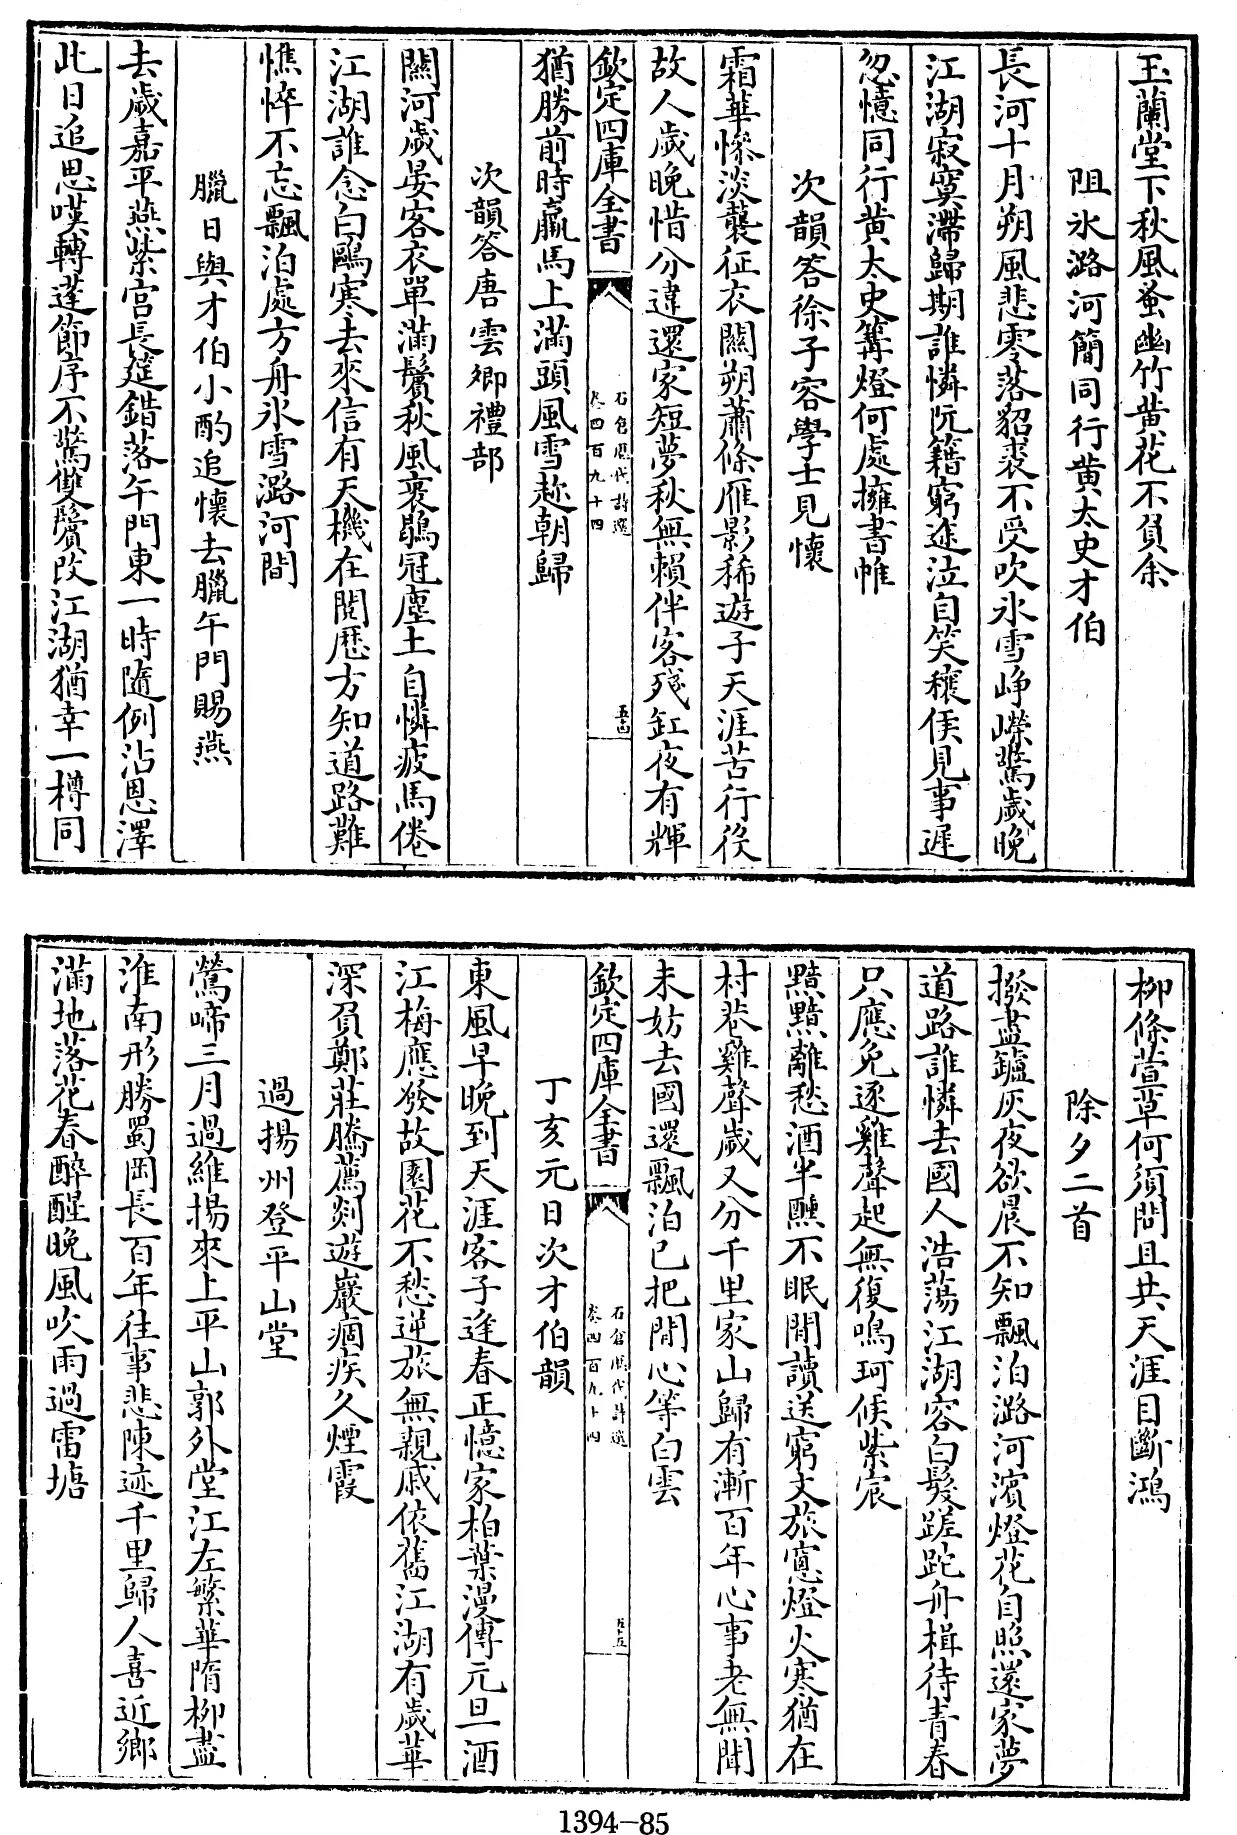 玉蘭堂下秋風蚤幽竹黄花不負余
阻氷潞河簡同行黄太史才伯
長河十月朔風悲零落貂裘不受吹氷雪崢嶸驚歲晚
江湖寂寞滯歸期誰憐阮籍窮途泣自笑穰侯見事遲
忽憶同行黄太史篝燈何處擁書帷
次韻答徐子容學士見懷
霜華慘淡襲征衣闗朔蕭條雁影稀遊子天涯苦行役
故人歲晚惜分違還家短夢秋無賴伴客殘缸夜有輝
欽定四庫全書
石倉歷代詩選
卷四百九十四
五十四
猶勝前時羸馬上滿頭風雪趂朝歸
次韻答唐雲卿禮部
闗河歲晏客衣單滿鬢秋風裹鶡冠塵土自憐疲馬倦
江湖誰念白鷗寒去來信有天機在閲歴方知道路難
憔悴不忘飄泊處方舟氷雪潞河間
臘日與才伯小酌追懷去臘午門賜燕
去歲嘉平燕紫宫長筵錯落午門東一時隨例沾恩澤
此日追思嘆轉蓬節序不驚雙鬢改江湖猶幸一樽同
柳條萱草何須問且共天涯目斷鴻
除夕二首
撥盡鑪灰夜欲晨不知飄泊潞河濱燈花自照還家夢
道路誰憐去國人浩蕩江湖容白髮蹉跎舟楫待青春
只應免逐雞聲起無復鳴珂候紫宸
黯黯離愁酒半醺不眠閒讀送窮文旅窻燈火寒猶在
村巷雞聲歲又分千里家山歸有漸百年心事老無聞
未妨去國還飄泊已把閒心等白雲
欽定四庫全書
石倉歷代詩選
卷四百九十四
五十五
丁亥元日次才伯韻
東風早晚到天涯客子逢春正憶家柏葉漫傳元旦酒
江梅應發故園花不愁逆旅無親戚依舊江湖有歲華
深負鄭莊騰薦剡遊巖痼疾久煙霞
過揚州登平山堂
鶯啼三月過維揚來上平山郭外堂江左繁華隋柳盡
淮南形勝蜀岡長百年往事悲陳迹千里歸人喜近鄉
滿地落花春醉醒晚風吹雨過雷塘
1394-85